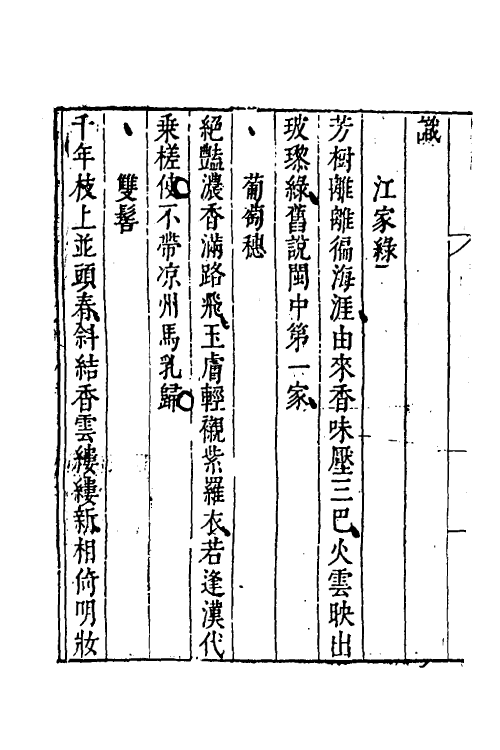 識
江家綠
芳樹離離徧海涯由來香味壓三巴火雲映出
玻瓈綠舊說閩中第一家
葡萄穗
絕豔濃香滿路飛玉膚輕襯紫羅衣若逢漢代
乘槎使不帶凉州馬乳歸
雙髻
千年枝上並頭春斜結香雲縷縷新相倚明妝